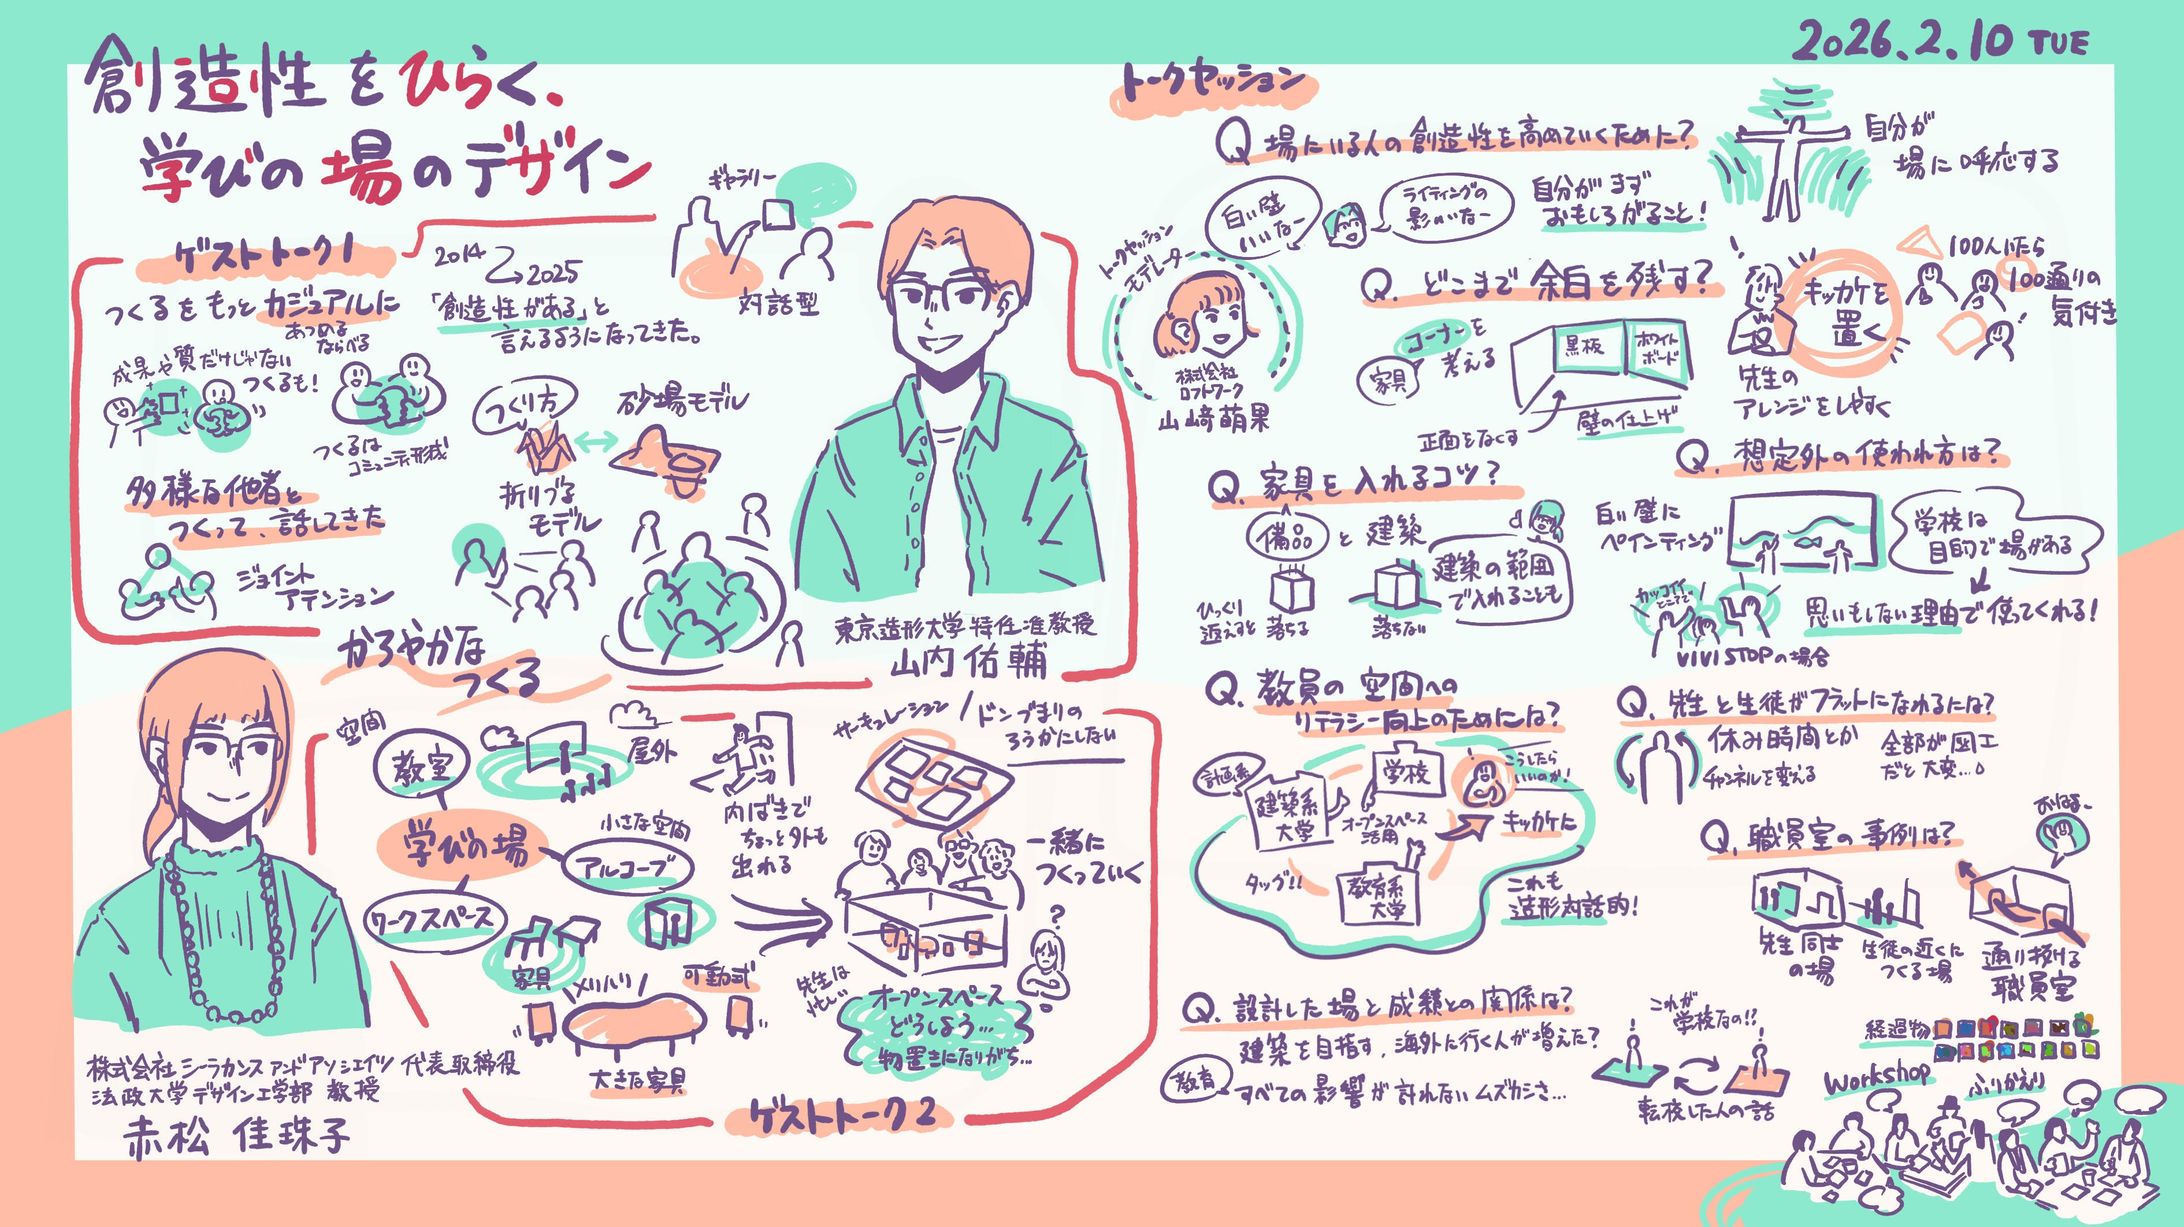 創造性をひらく、
学びの場のデザイン
2026.2.10 TUE
ゲストトーク1
つくるをもっとカジュアルに
あつめる
ならべる
成果や質だけじゃない
つくるも!
つくるは
コミュニティ形成
多様な他者と
つくって、話してきた
ジョイント
アテンション
2014
2025
「創造性がある」と
言えるようになってきた。
ギャラリー
対話型
つくり方
砂場モデル
折りづる
モデル
かろやかな
つくる
東京造形大学特任准教授
山内佑輔
空間
教室
屋外
学びの場
小さな空間
アルコーブ
ワークスペース
家具
メリハリ
可動式
大きな家具
内ばきで
ちょっと外も
出れる
サーキュレーション/ドンづまりの
ろうかにしない
一緒に
つくっていく
?
先生は
忙しい
オープンスペース
どうしよう…
物置きになりがち…
株式会社シーラカンスアンドアソシエイツ 代表取締役
法政大学デザイン工学部 教授
赤松 佳珠子
ゲストトーク2
トークセッション
Q 場にいる人の創造性を高めていくために?
白い壁
いいなー
ライティングの
影がいいなー
自分がまず
おもしろがること!
自分が
場に呼応する
トークセッション
モデレーター
株式会社
ロフトワーク
山﨑萌果
Q. どこまで余白を残す?
コーナーを
考える
家具
黒板
ホワイト
ボード
正面をなくす
壁の仕上げ
キッカケを
置く
先生の
アレンジをしやすく
100人いたら
100通りの
気付き
Q. 家具を入れるコツ?
備品と建築
ひっくり
返えすと落ちる
落ちない
建築の範囲
で入れることも
Q. 想定外の使われ方は?
白い壁に
ペインティング
学校は
目的で場がある
カッコイイ
とこでで
思いもしない理由で使ってくれる!
VIVISTOPの場合
Q. 教員の空間への
リテラシー向上のためには?
計画系
建築系
大学
学校
オープンスペース
活用
こうしたら
いいのか!
キッカケに
タッグ!!
教育系
大学
これも
造形対話的!
Q. 先生と生徒がフラットになれるには?
休み時間とか
チャンネルを変える
全部が図工
だと大変…
Q. 職員室の事例は?
おはよー
先生同士
の場
生徒の近くに
つくる場
通り抜ける
職員室
Q. 設計した場と成績との関係は?
建築を目指す、海外に行く人が増えた?
教育
すべての影響が計れないムズカシさ…
これが
学校なの!?
転校した人の話
経過物
Workshop
ふりかえり